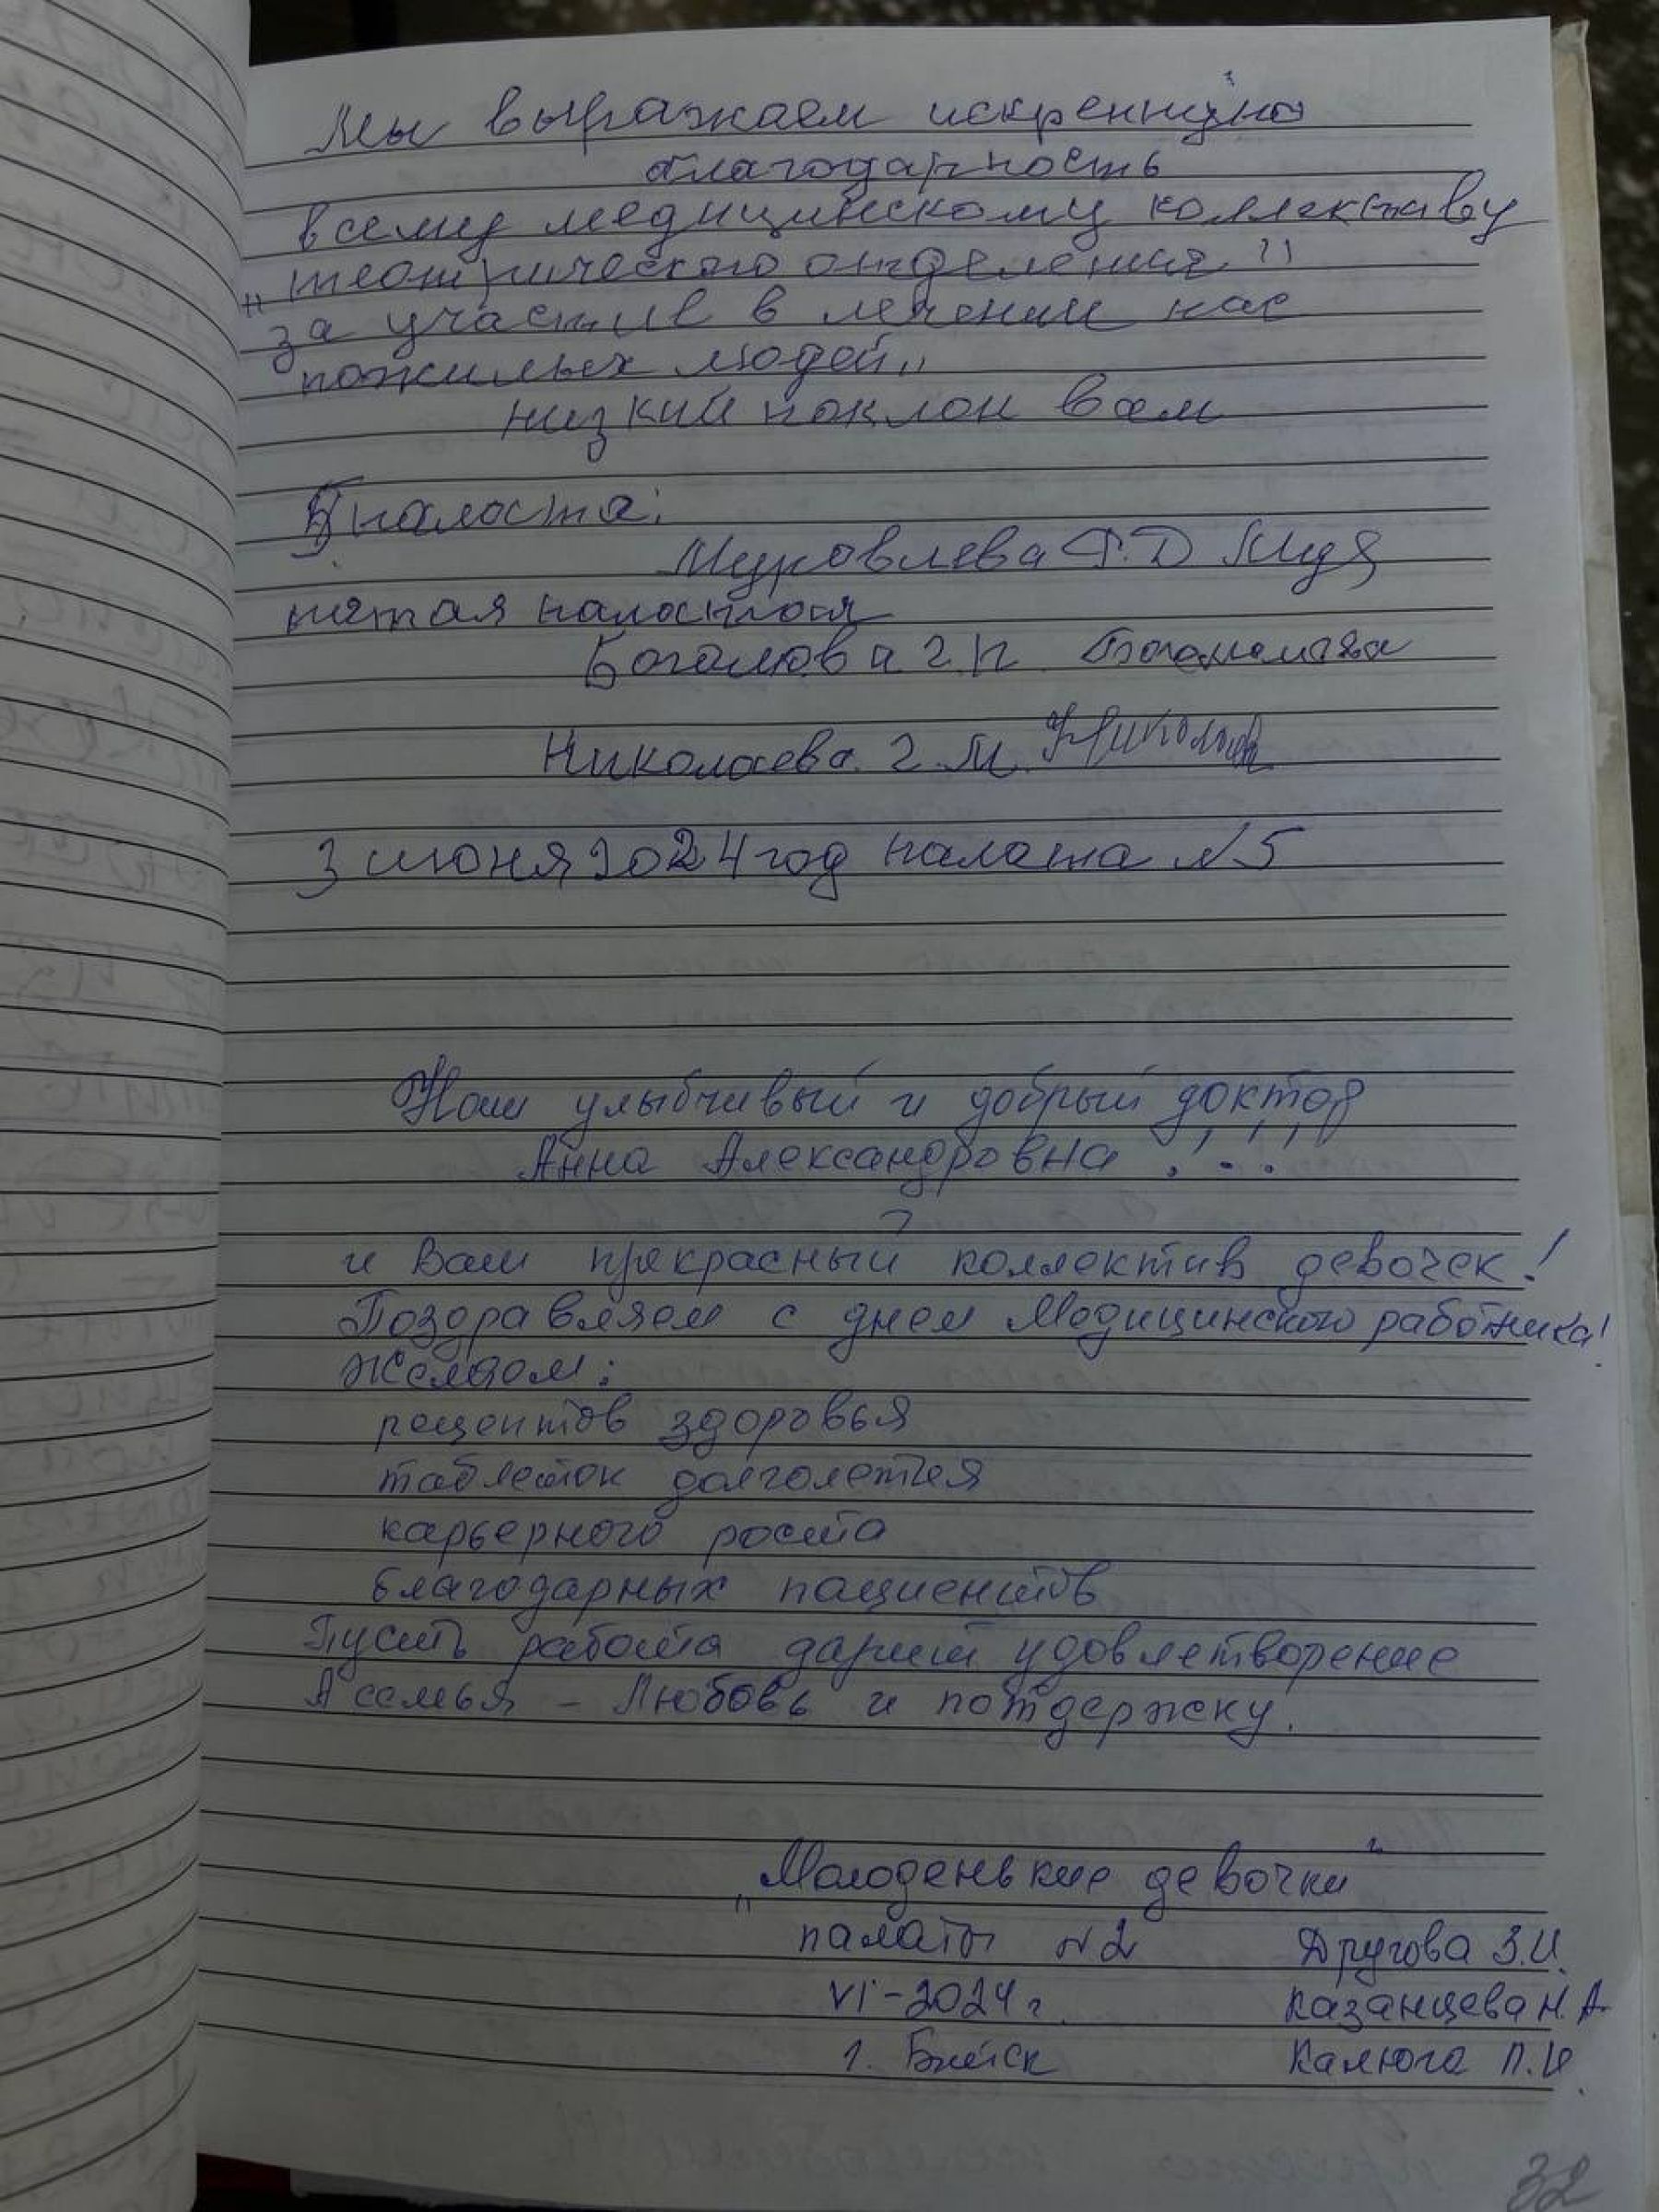 Мы выражаем искренную
благодарность
всему медицинскому коллективу
за участие в лечении нас
пожилых людей"
низкий поклон вам
5 палата:
Муковлева Ф.Д
пятая палатоя
Боголюва Г.П.
Николаева Г.М. Николаева
3 июня 2024 год палата N 5
Наш улыбчивый и добрый доктор
Анна Александровна !...
и Ваш прекрасный коллектив девочек!
Поздоравляем с днем Медицинского работника!
Желаем:
рецептов здоровья
таблеток долголетия
карьерного роста
благодарных пациентов
Пусть работа дарит удовлетворение
А семья - Любовь и потдержку.
„Молоденькие девочки"
палаты N2 Другова З.И.
VI-2024г. Казанцева Н.А.
г. Бийск Калюга Л.И.
32